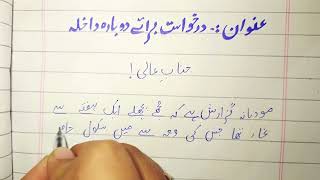 عنوان :- درخواست برائے دوبارہ داخلہ
جناب عالی !
مودبانہ گزارش ہے کہ مجھے پچھلے ایک ہفتہ سے
بخار تھا جس کی وجہ سے میں سکول